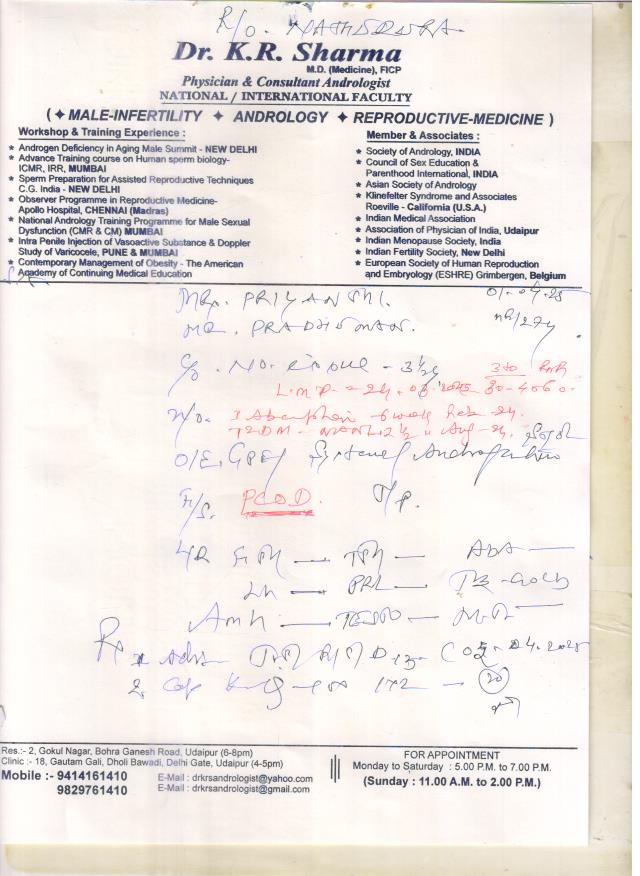 R/o. NATHDWARA.
Dr. K.R. Sharma
M.D. (Medicine), FICP
Physician & Consultant Andrologist
NATIONAL / INTERNATIONAL FACULTY
( ✦ MALE-INFERTILITY ✦ ANDROLOGY ✦ REPRODUCTIVE-MEDICINE )
Workshop & Training Experience :
* Androgen Deficiency in Aging Male Summit - NEW DELHI
* Advance Training course on Human sperm biology-
ICMR, IRR, MUMBAI
* Sperm Preparation for Assisted Reproductive Techniques
C.G. India - NEW DELHI
* Observer Programme in Reproductive Medicine-
Apollo Hospital, CHENNAI (Madras)
* National Andrology Training Programme for Male Sexual
Dysfunction (CMR & CM) MUMBAI
* Intra Penile Injection of Vasoactive Substance & Doppler
Study of Varicocele, PUNE & MUMBAI
* Contemporary Management of Obesity - The American
Academy of Continuing Medical Education
Member & Associates :
* Society of Andrology, INDIA
* Council of Sex Education &
Parenthood International, INDIA
* Asian Society of Andrology
* Klinefelter Syndrome and Associates
Roeville - California (U.S.A.)
* Indian Medical Association
* Association of Physician of India, Udaipur
* Indian Menopause Society, India
* Indian Fertility Society, New Delhi
* European Society of Human Reproduction
and Embryology (ESHRE) Grimbergen, Belgium
Mrs. PRIYANSHI.
MR.
C/o. NO. issue - 3½
L.M.P = 24.03.2025
H/o. 3 6 week
T2DM
O/E.
PCOD.
LH — PRL —
AMH — TESTO —
Rx 1 Adv. 04.2025
2 Cap
Res.:- 2, Gokul Nagar, Bohra Ganesh Road, Udaipur (6-8pm)
Clinic :- 18, Gautam Gali, Dholi Bawadi, Delhi Gate, Udaipur (4-5pm)
Mobile :- 9414161410
9829761410
E-Mail : drkrsandrologist@yahoo.com
E-Mail : drkrsandrologist@gmail.com
FOR APPOINTMENT
Monday to Saturday : 5.00 P.M. to 7.00 P.M.
(Sunday : 11.00 A.M. to 2.00 P.M.)